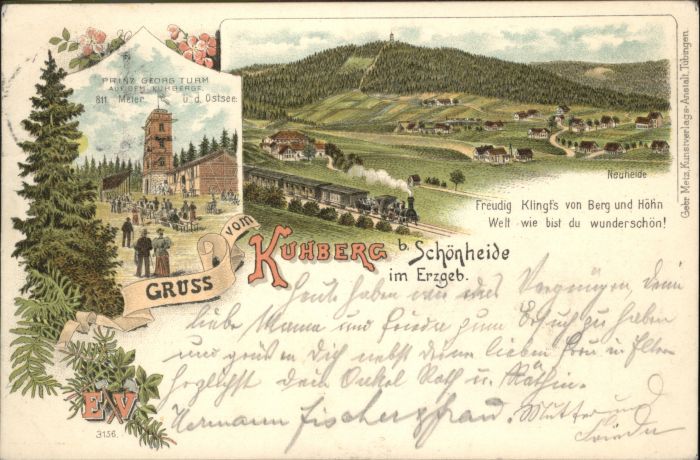 PRINZ GEORG TURM
AUF DEM KUHBERGE.
811 Meter ü. d. Ostsee.
Neuheide
Freudig Klingt's von Berg und Höhn
Welt - wie bist du wunderschön!
Gebr. Metz, Kunstverlags-Anstalt, Tübingen.
GRUSS vom KUHBERG b. Schönheide
im Erzgeb.
Heute haben wir das Vergnügen, deine
liebe Mama und Frieda zum Besuch zu haben
und grüßen Dich nebst deiner lieben Frau u. Eltern
herzlichst Dein Onkel u.
Hermann Fischer Frau. Mutter und
Frieda
EV
3156.